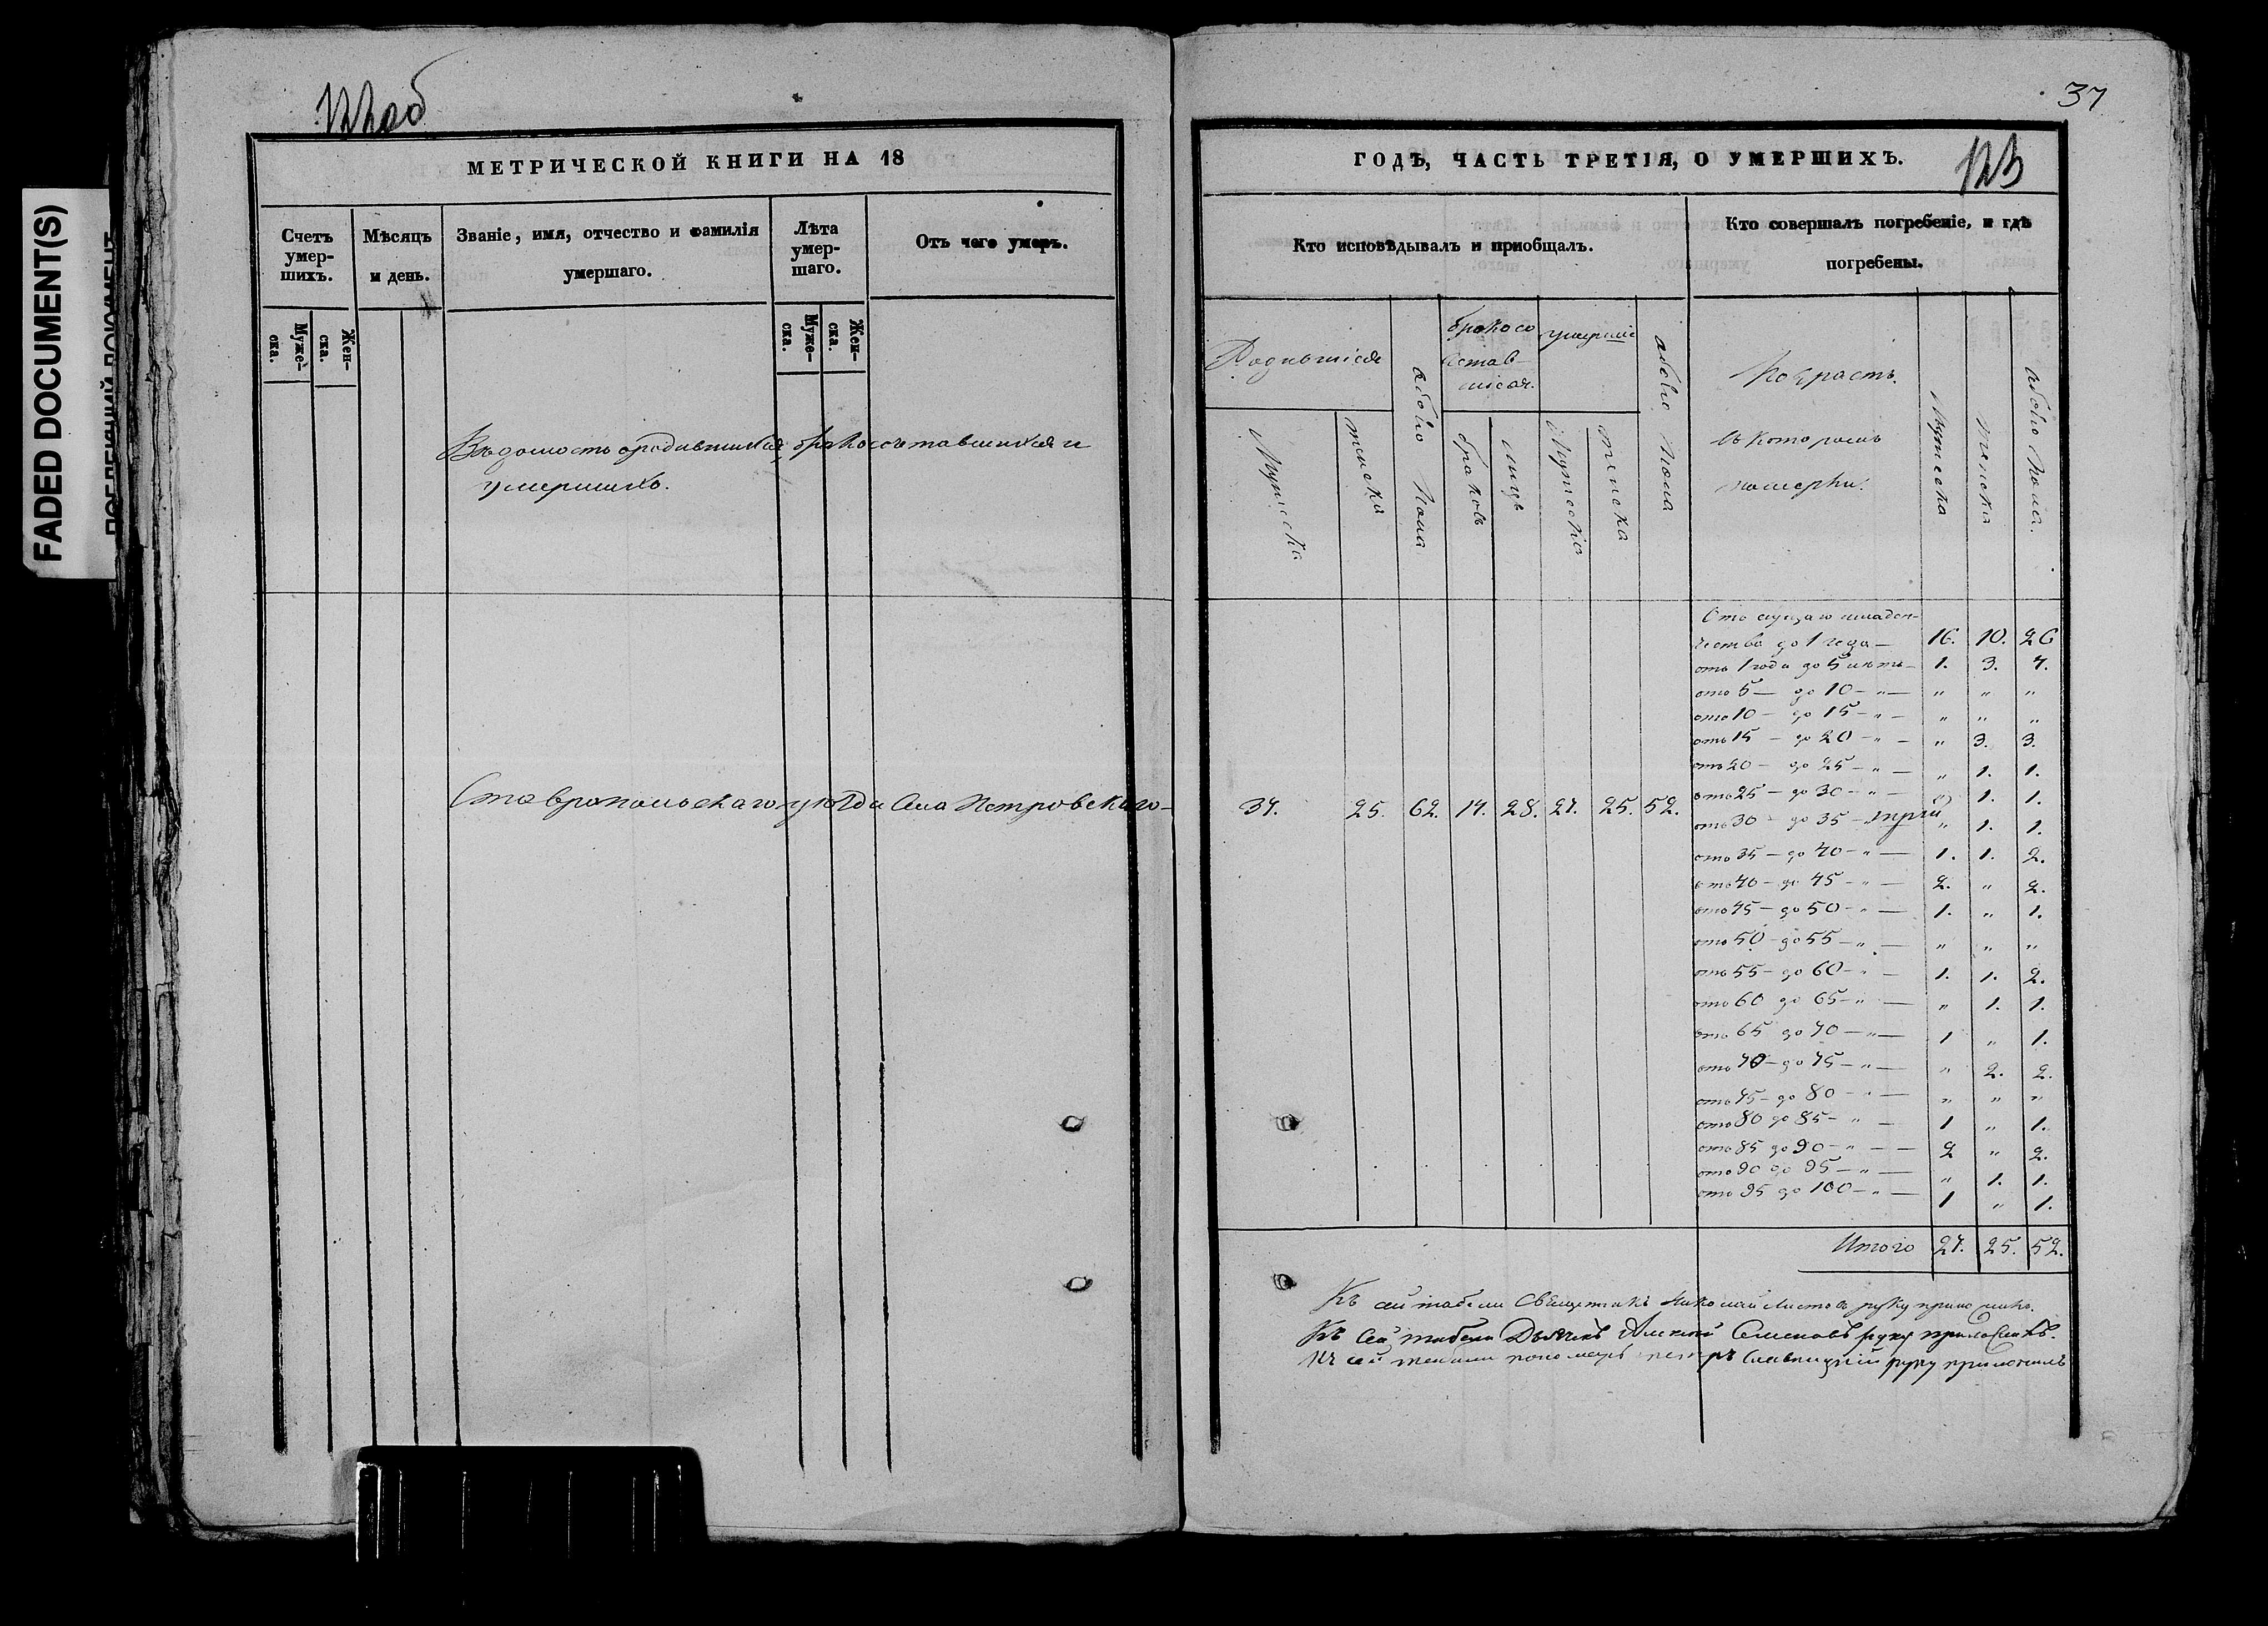 FADED DOCUMENT(S)
122 об
МЕТРИЧЕСКОЙ КНИГИ НА 18
Счетъ умер- шихъ.
Мѣсяцъ и день.
Званіе, имя, отчество и фамилія умершаго.
Лѣта умер- шаго.
Отъ чего умеръ.
Муже- ска.
Жен- ска.
Муже- ска.
Жен- ска.
Вѣдомость о родившихся, бракосочетавшихся и
умершихъ.
Ставропольскаго уѣзда села Петровскаго —
37
ГОДЪ, ЧАСТЬ ТРЕТІЯ, О УМЕРШИХЪ.
123
Кто исповѣдывалъ и приобщалъ.
Кто совершалъ погребеніе, и гдѣ погребены.
Родившіеся
обоего пола
бракосо
четав-
шіеся.
умершіе
обоего пола
Возрастъ
въ которомъ
померли.
Мужеска
женска
обоего пола.
Мужеска
женска
браковъ
лицъ
Мужеска
женска
37. 25. 62. 14. 28. 27. 25. 52.
Отъ сущаго младен-
чества до 1 года — 16. 10. 26
отъ 1 года до 5 лѣтъ — 1. 3. 4.
отъ 5 — до 10 — " — " " "
отъ 10 — до 15 — " — " " "
отъ 15 — до 20 — " — " 3. 3.
отъ 20 — до 25 — " — " 1. 1.
отъ 25 — до 30 — " — " 1. 1.
отъ 30 — до 35 — " — " 1. 1.
отъ 35 — до 40 — " — 1. 1. 2.
отъ 40 — до 45 — " — 2. " 2.
отъ 45 — до 50 — " — 1. " 1.
отъ 50 — до 55 — " — " " "
отъ 55 — до 60 — " — 1. 1. 2.
отъ 60 до 65 — " — " 1. 1.
отъ 65 до 70 — " — 1 " 1.
отъ 70 — до 75 — " — " 2. 2.
отъ 75 — до 80 — " — " " "
отъ 80 до 85 — " — 1 " 1.
отъ 85 до 90 — " — 2 " 2.
отъ 90 до 95 — " — " 1. 1.
отъ 95 до 100 — " — 1 " 1.
Итого 27. 25. 52.
Къ сей табели Священникъ Николай Листовъ руку приложилъ.
Къ сей табели Дьячекъ Алексѣй Семеновъ руку приложилъ.
Къ сей табели пономарь Петръ Славницкій руку приложилъ